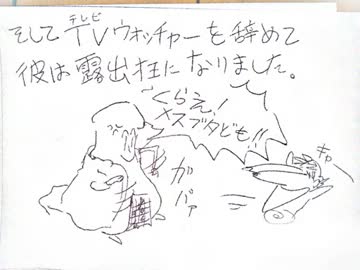 そしてTVウォッチャーを辞めて
テレビ
彼は露出狂になりました。
くらえ!
メスブタども!!
ガバァ
キャー